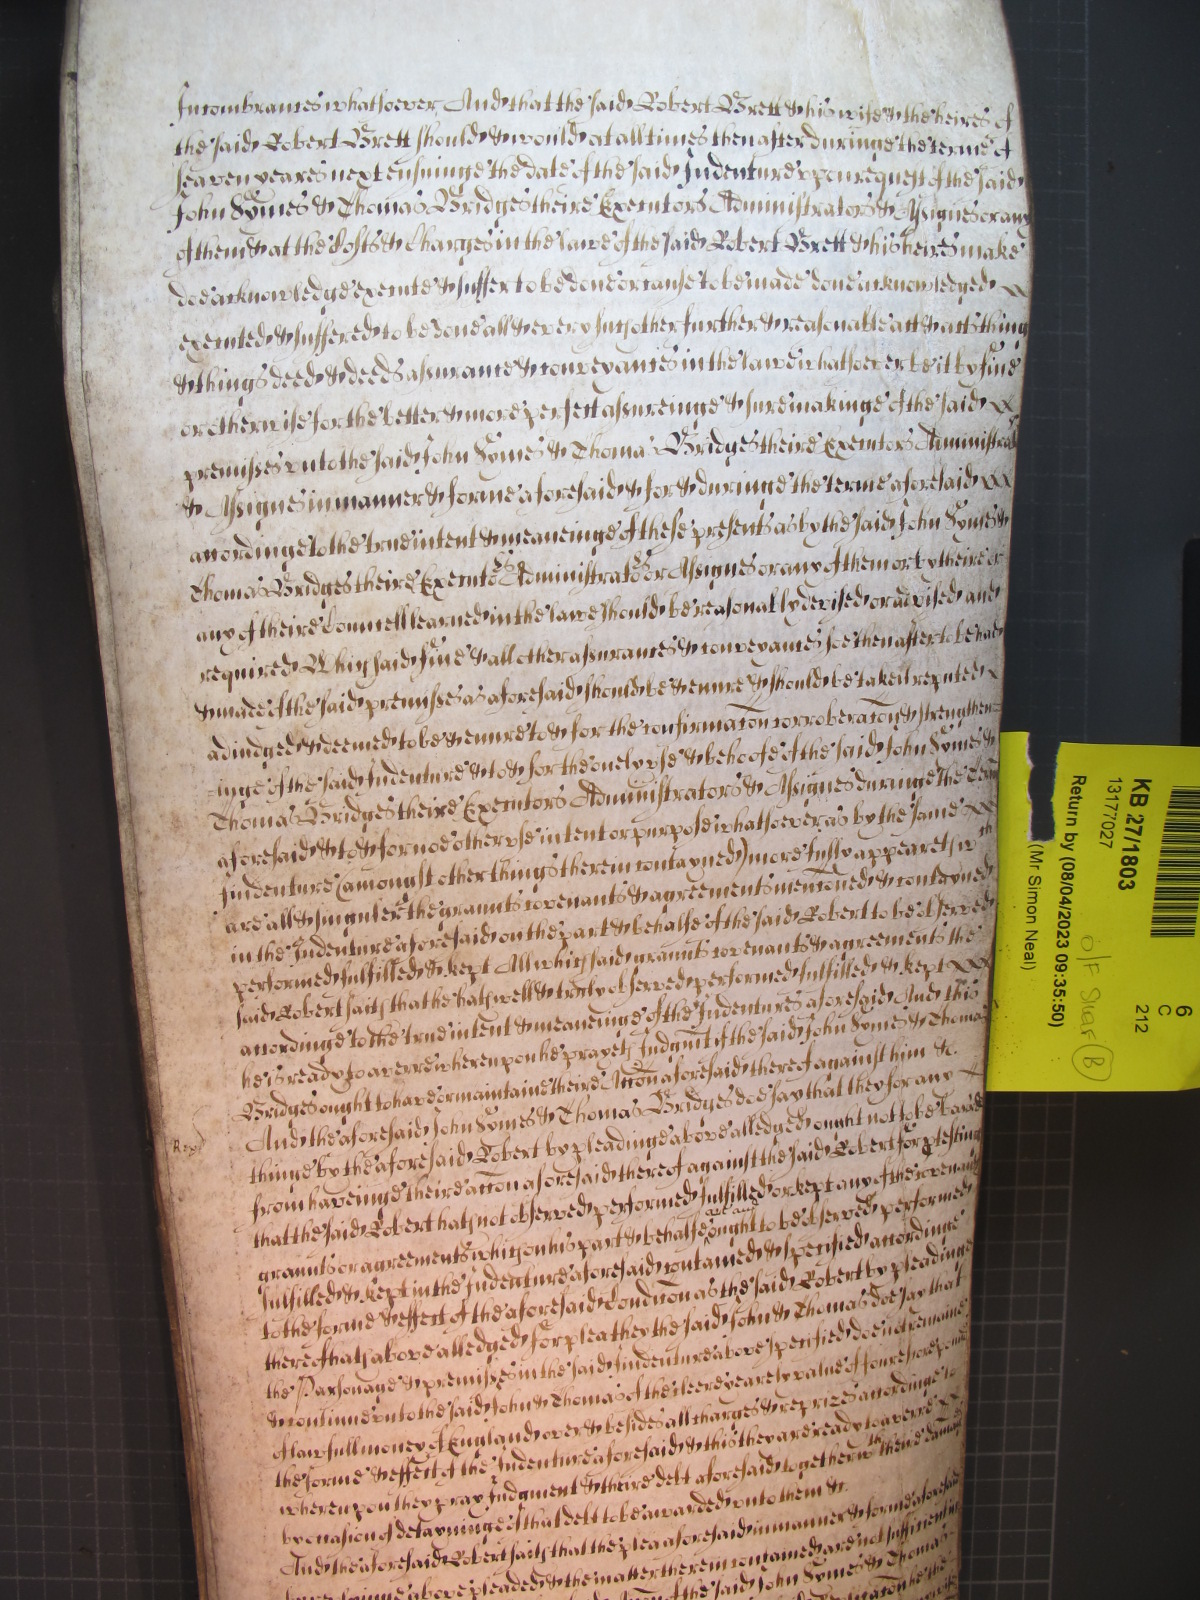 Incombrances whatsoever And that the said Robert Brett & his wife & the heires of
the said Robert Brett should & would at all times then after duringe the terme of
seaven yeares next ensuinge the date of the said Indenture vpon request of the said
John Symes & Thomas Bridges theire Executors Administrators & Assignes or any
of them & at the Costs & Charges in the lawe of the said Robert Brett & his heires make
doe acknowledge execute & suffer to be done or cause to be made done acknowledged
executed & suffered to be done all & every such other further & reasonable act & acts thing
& things deed & deeds assurance & conveyances in the lawe whatsoever be it by fine
or otherwise for the better & more perfect assureinge & sure makinge of the said
premisses vnto the said John Symes & Thomas Bridges theire Executors Administrat
& Assignes in manner & forme aforesaid & for & duringe the terme aforesaid
accordinge to the true intent & meaneinge of these presents as by the said John Symes &
Thomas Bridges theire Executors Administrators or Assignes or any of them or by theire or
any of theire Councell learned in the lawe should be reasonably devised or advised and
required Which said fine & all other assurances & conveyances soe then after to be had
& made of the said premisses as aforesaid should be & enure & should be taken reputed
adiudged & deemed to be & enure to & for the confirmacon corroberacon & strengthen
inge of the said Indenture & to & for the onely vse & behoofe of the said John Symes &
Thomas Bridges theire Executors Administrators & Assignes duringe the Terme
aforesaid & to & for noe other vse intent or purpose whatsoever as by the same
Indenture (amongst other things therein contayned) more fully appeareth wch
are all & singuler the graunts covenants & agreements mencioned & contayned
in the Indenture aforesaid on the part & behalfe of the said Robert to be observed
performed fulfilled & kept All which said graunts covenants & agreements the
said Robert saith that he hath well & truly observed performed fulfilled & kept
accordinge to the true intent & meaneinge of the Indentures aforesaid And this
he is ready to averre wherevpon he prayeth Judgmt if the said John Symes & Thomas
Bridges ought to have or maintaine theire Accon aforesaid thereof against him &c.
Rep
And the aforesaid John Symes & Thomas Bridges doe say that they for any
thinge by the aforesaid Robert by pleadinge above alledged ought not to be barred
from haveinge theire accon aforesaid thereof against the said Robert for p'testing
that the said Robert hath not observed performed fulfilled or kept any of the covenants
graunts or agreements which on his part & behalfe are and ought to be observed performed
fulfilled & kept in the Indenture aforesaid contained & specified accordinge
to the forme & effect of the aforesaid Condicon as the said Robert by pleadinge
thereof hath above alledged for plea they the said John & Thomas doe say that
the Parsonage & premisses in the said Indenture above specified doe not remaine
& continue vnto the said John & Thomas of the cleere yearely value of foure score pounds
of lawfull money of England over & besides all charges & reprizes accordinge to
the forme & effect of the Indenture aforesaid & this they are ready to averre
wherevpon they pray Judgment & theire debt aforesaid together wth theire damages
by occasion of detayninge of that debt to be awarded vnto them &c.
And the aforesaid Robert saith that the plea aforesaid in manner & forme aforesaid
above pleaded & the matter therein contained are not sufficient in
of the said John Symes & Thomas